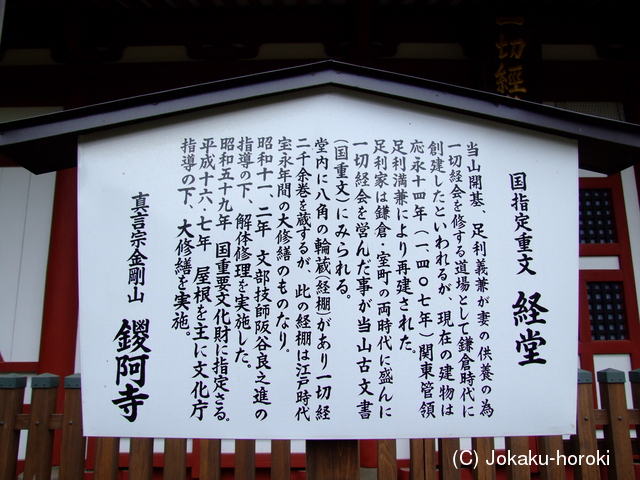 一切経
国指定重文 経堂
当山開基、足利義兼が妻の供養の為
一切経会を修する道場として鎌倉時代に
創建したといわれるが、現在の建物は
応永十四年(一四〇七年)関東管領
足利満兼により再建された。
足利家は鎌倉・室町の両時代に盛んに
一切経会を営んだ事が当山古文書
(国重文)にみられる。
堂内に八角の輪蔵(経棚)があり一切経
二千余巻を蔵するが、此の経棚は江戸時代
宝永年間の大修繕のものなり。
昭和十一、二年 文部技師阪谷良之進の
指導の下、解体修理を実施した。
昭和五十九年 国重要文化財に指定さる。
平成十六、七年 屋根を主に文化庁
指導の下、大修繕を実施。
真言宗金剛山 鑁阿寺
(C) Jokaku-horoki